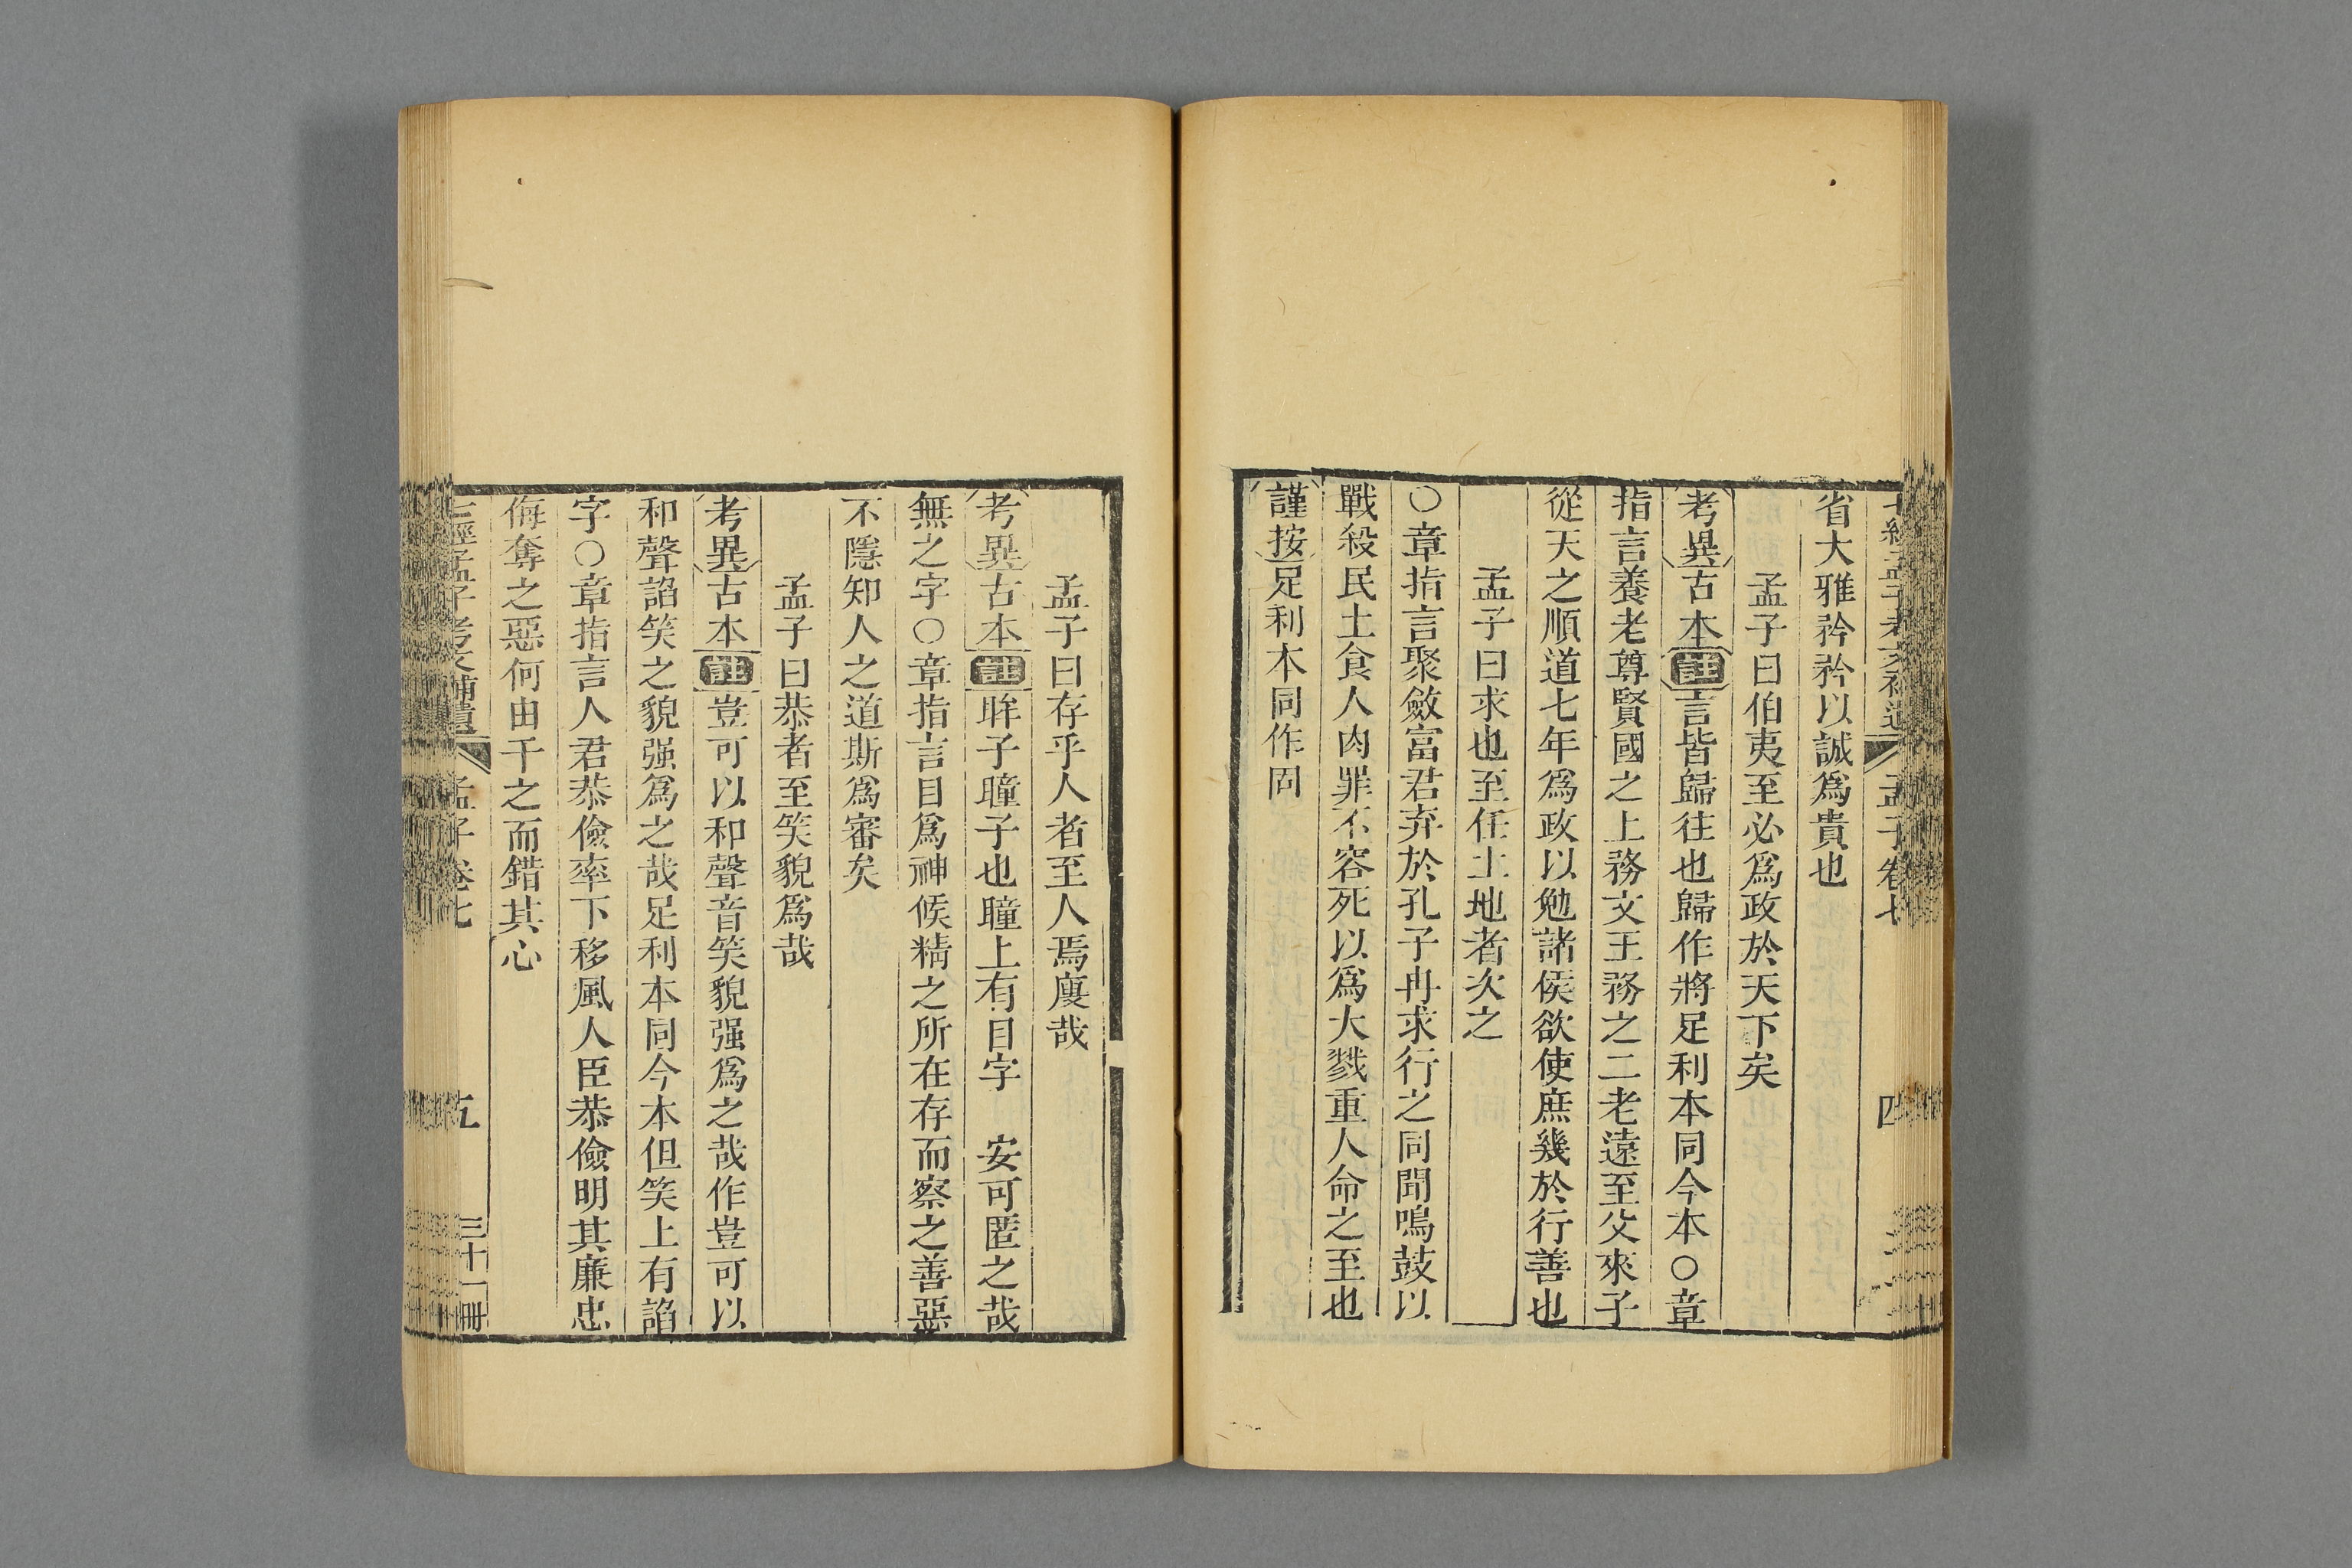 省大雅矜矜以誠爲貴也
孟子曰伯夷至必爲政於天下矣
考異古本註言皆歸往也歸作將足利本同今本○章
指言養老尊賢國之上務文王務之二老遠至父來子
從天之順道七年爲政以勉諸侯欲使庶幾於行善也
孟子曰求也至任土地者次之
○章指言聚斂富君弃於孔子冉求行之同聞鳴鼓以
戰殺民土食人肉罪不容死以爲大戮重人命之至也
謹按足利本同作罔
孟子曰存乎人者至人焉廋哉
考異古本註眸子瞳子也瞳上有目字 安可匿之哉
無之字○章指言目爲神候精之所在存而察之善惡
不隱知人之道斯爲審矣
孟子曰恭者至笑貌爲哉
考異古本註豈可以和聲音笑貌强爲之哉作豈可以
和聲諂笑之貌强爲之哉足利本同今本但笑上有諂
字○章指言人君恭儉率下移風人臣恭儉明其廉忠
侮奪之惡何由干之而錯其心
七經孟子考文補遺 孟子卷七 五 三十一冊